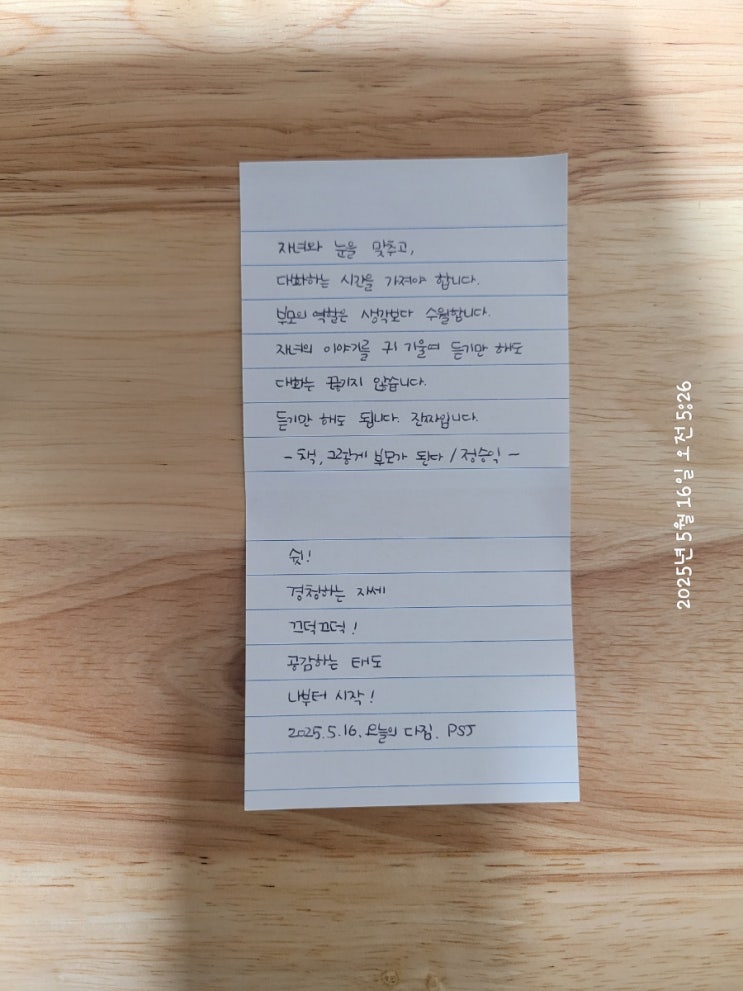 자녀와 눈을 맞추고,
대화하는 시간을 가져야 합니다.
부모의 역할은 생각보다 수월합니다.
자녀의 이야기를 귀 기울여 듣기만 해도
대화는 끊기지 않습니다.
듣기만 해도 됩니다. 진짜입니다.
- 책, 그렇게 부모가 된다 / 정승익 -
쉿!
경청하는 자세
끄덕끄덕!
공감하는 태도
나부터 시작!
2025.5.16. 오늘의 다짐. PSJ
2025년 5월 16일 오전 5:26